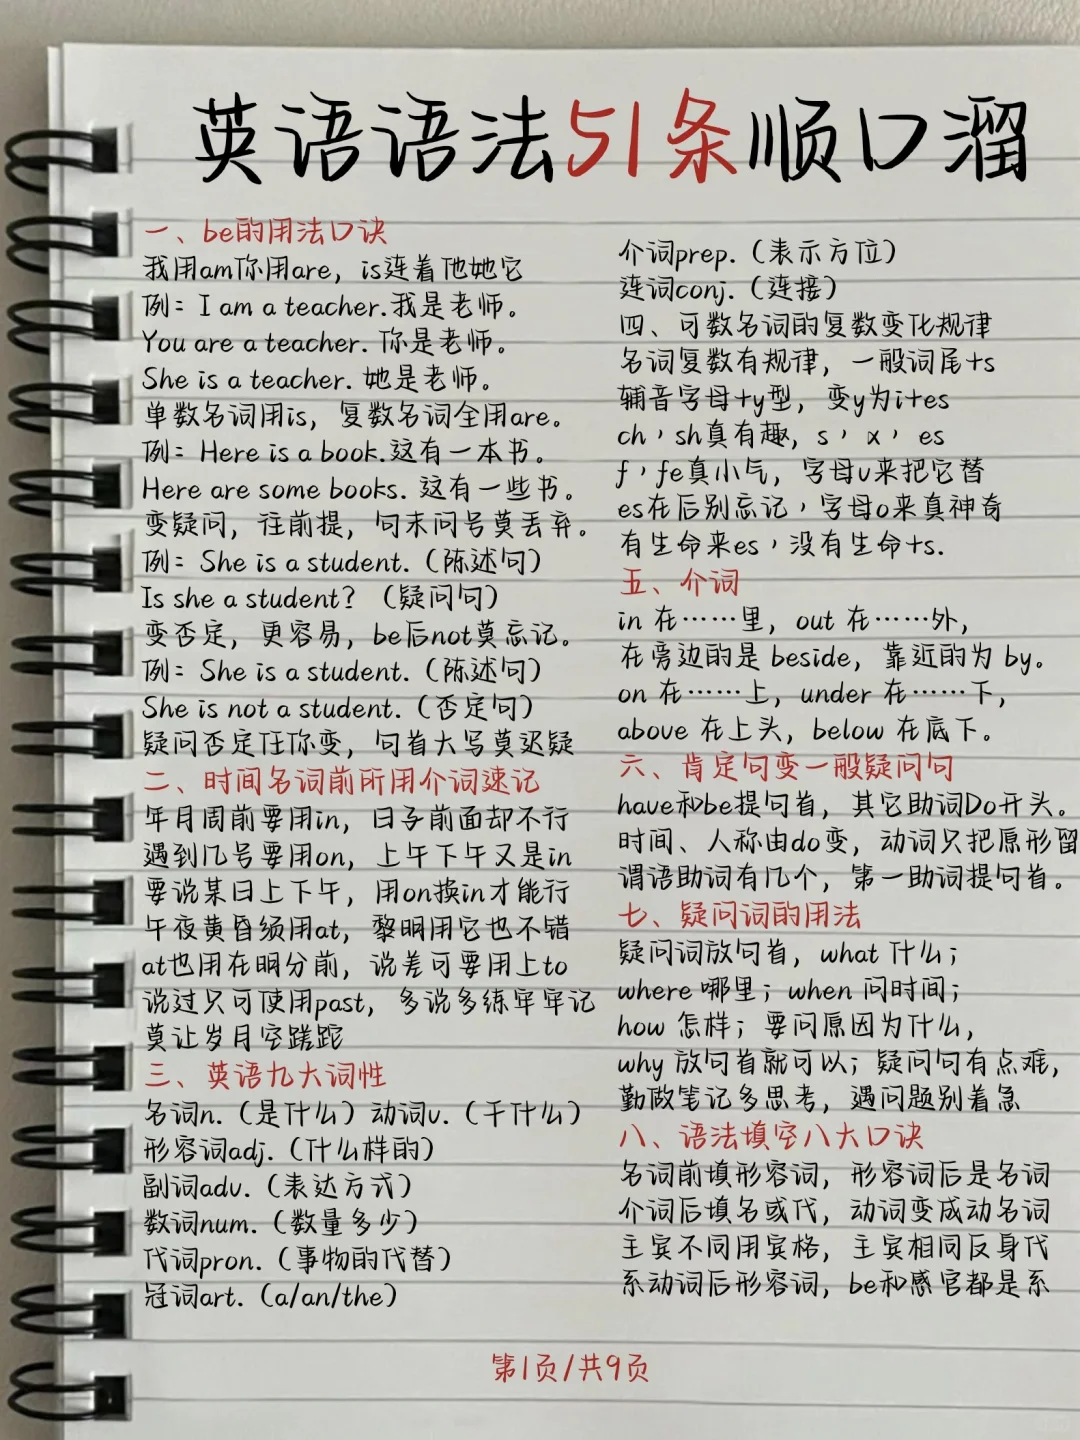 英语语法51条顺口溜
一、be的用法口诀
我用am你用are，is连着他她它
例：I am a teacher.我是老师。
You are a teacher. 你是老师。
She is a teacher. 她是老师。
单数名词用is，复数名词全用are。
例：Here is a book.这有一本书。
Here are some books. 这有一些书。
变疑问，往前提，句末问号莫丢弃。
例：She is a student.（陈述句）
Is she a student？（疑问句）
变否定，更容易，be后not莫忘记。
例：She is a student.（陈述句）
She is not a student.（否定句）
疑问否定任你变，句首大写莫迟疑
二、时间名词前所用介词速记
年月周前要用in，日子前面却不行
遇到几号要用on，上午下午又是in
要说某日上下午，用on换in才能行
午夜黄昏须用at，黎明用它也不错
at也用在明分前，说差可要用上to
说过只可使用past，多说多练牢牢记
莫让岁月空蹉跎
三、英语九大词性
名词n.（是什么）动词v.（干什么）
形容词adj.（什么样的）
副词adv.（表达方式）
数词num.（数量多少）
代词pron.（事物的代替）
冠词art.（a/an/the）
介词prep.（表示方位）
连词conj.（连接）
四、可数名词的复数变化规律
名词复数有规律，一般词尾+s
辅音字母+y型，变y为i+es
ch，sh真有趣，s，x，es
f，fe真小气，字母v来把它替
es在后别忘记，字母o来真神奇
有生命来es，没有生命+s.
五、介词
in 在……里，out 在……外，
在旁边的是 beside，靠近的为 by。
on 在……上，under 在……下，
above 在上头，below 在底下。
六、肯定句变一般疑问句
have和be提句首，其它助词Do开头。
时间、人称由do变，动词只把原形留
谓语助词有几个，第一助词提句首。
七、疑问词的用法
疑问词放句首，what 什么；
where 哪里；when 问时间；
how 怎样；要问原因为什么，
why 放句首就可以；疑问句有点难，
勤做笔记多思考，遇问题别着急
八、语法填空八大口诀
名词前填形容词，形容词后是名词
介词后填名或代，动词变成动名词
主宾不同用宾格，主宾相同反身代
系动词后形容词，be和感官都是系
第1页/共9页